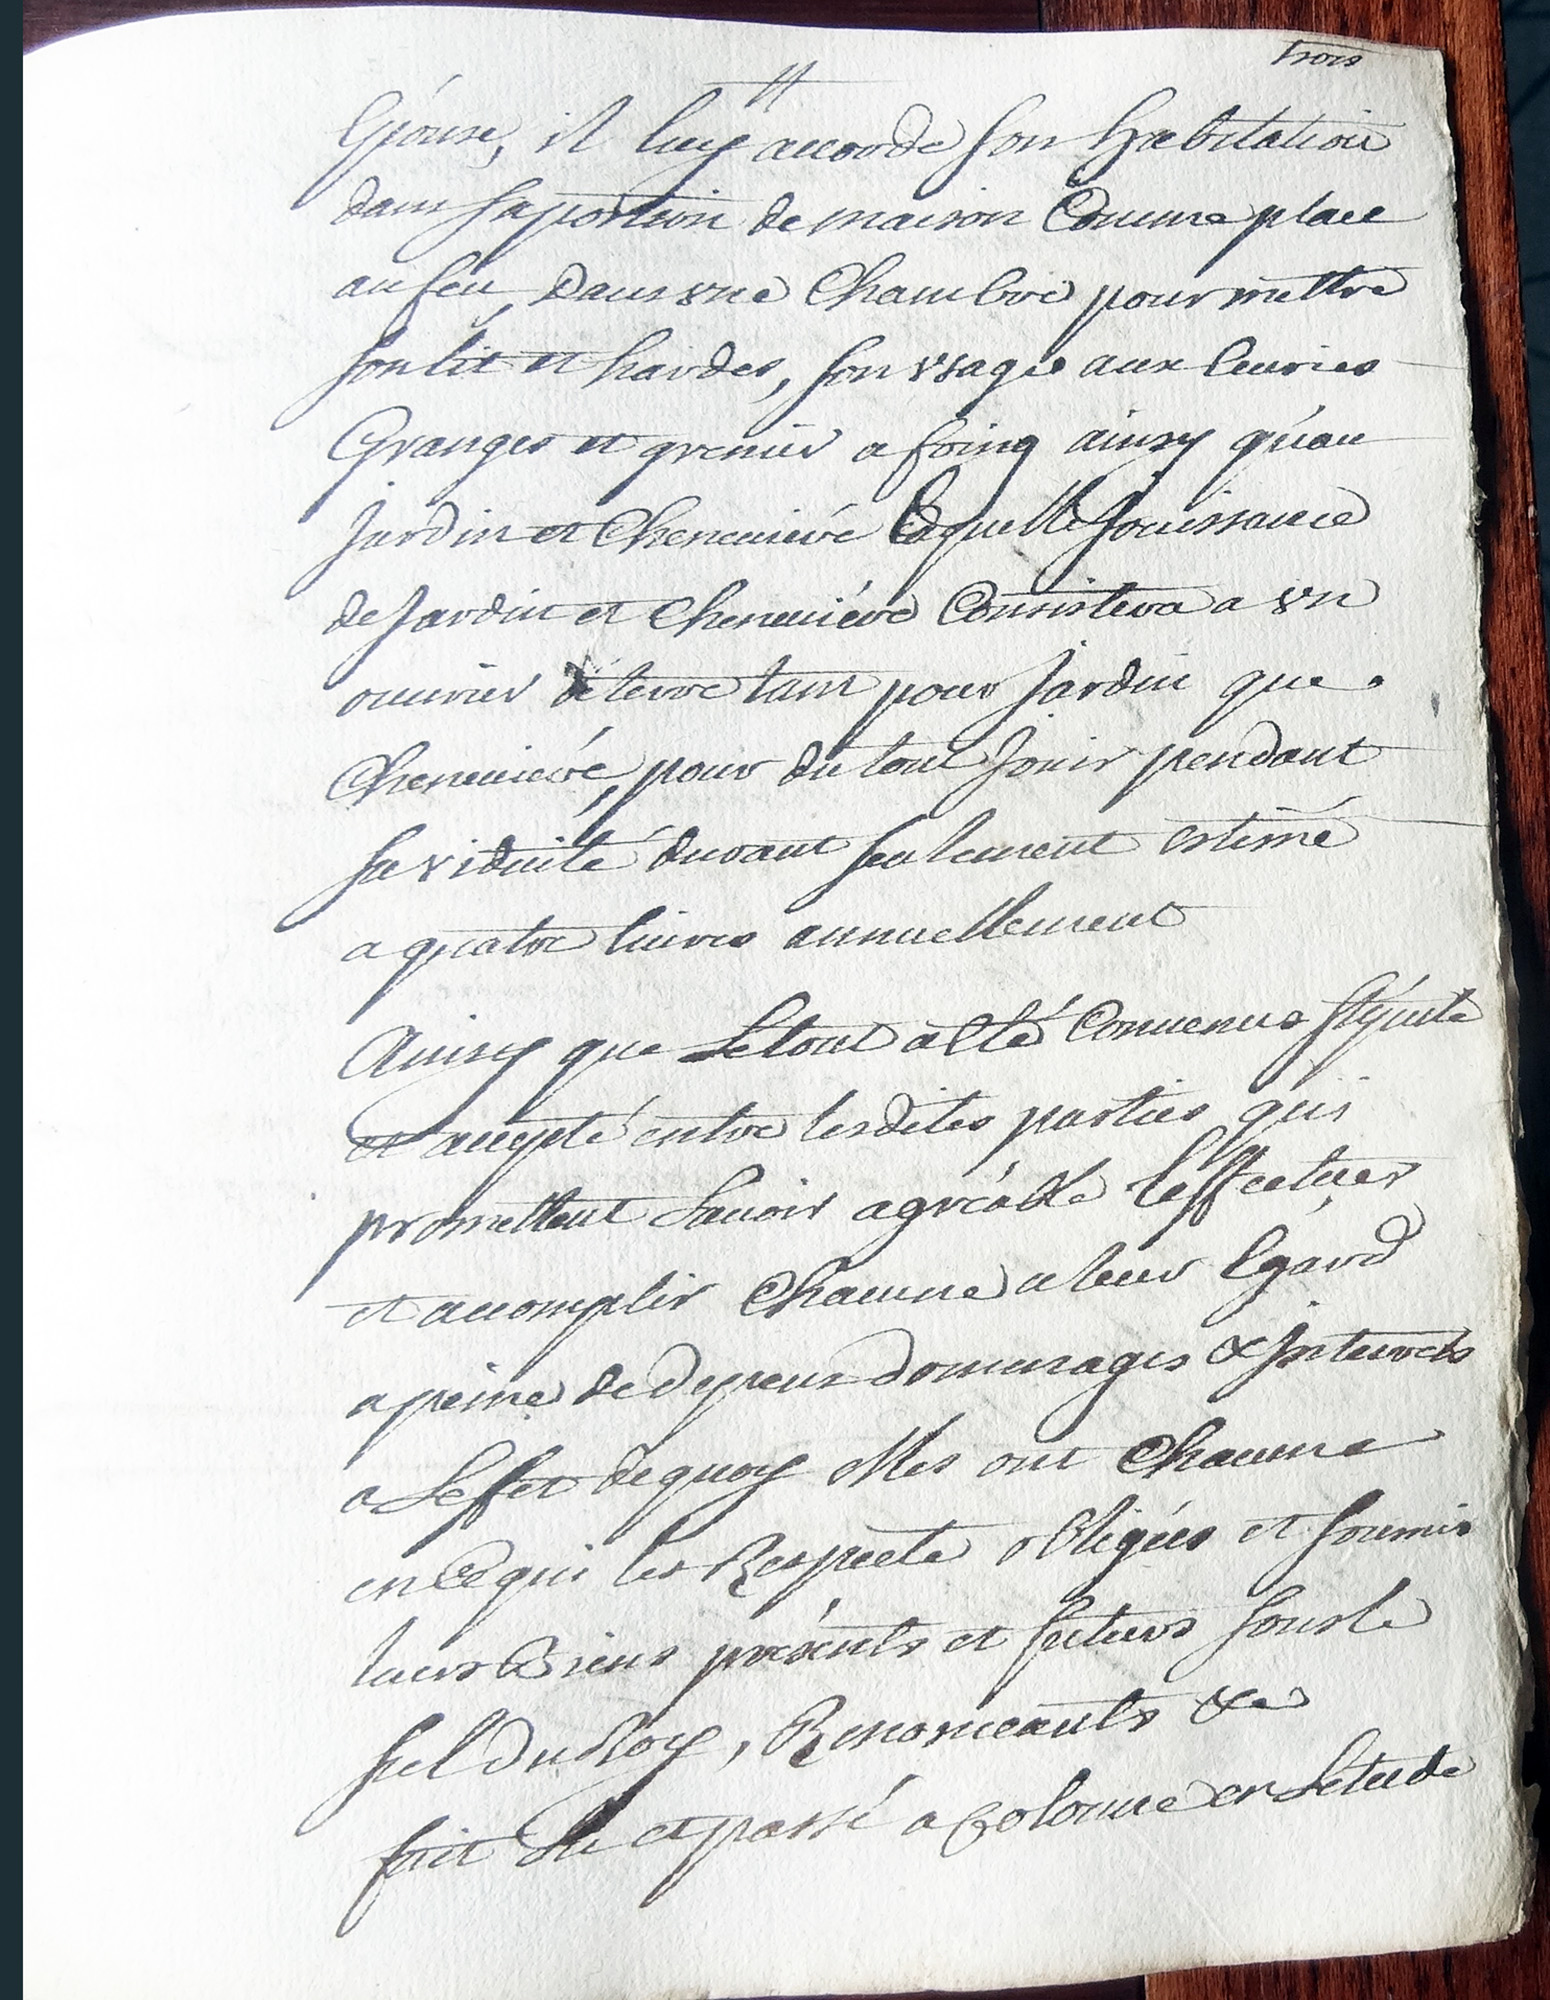 trois
Epouse, il luy accorde son habitation
dans sa portion de maison comme place
au feu, dans vne Chambre pour mettre
son lit et hardes, son vsage aux Ecuries
Granges et grenier a foing ainsy qu'au
Jardin et Cheneuiere Laquelle Jouissance
de Jardin et Cheneuiére Consistera a vn
ouurier de terre tant pour Jardin que
Cheneuieré, pour du tout Jouir pendant
sa viduité durant seulement estimé
a quatre liures annuellement
Ainsy que le tout a Eté Conuenue stipulé
et accepté entre lesdites parties qui
promettent Lauoir agréable Leffectuer
et accomplir Chacune a leur Egard
a peine de depens dommages & Interrets
a Leffet de quoy elles ont Chacune
en Ce qui les Respecte obligées et soumis
leurs Biens présents et futurs sous le
scel du Roy, Renonceants &c
fait Lu et passé a Colonne en Letude